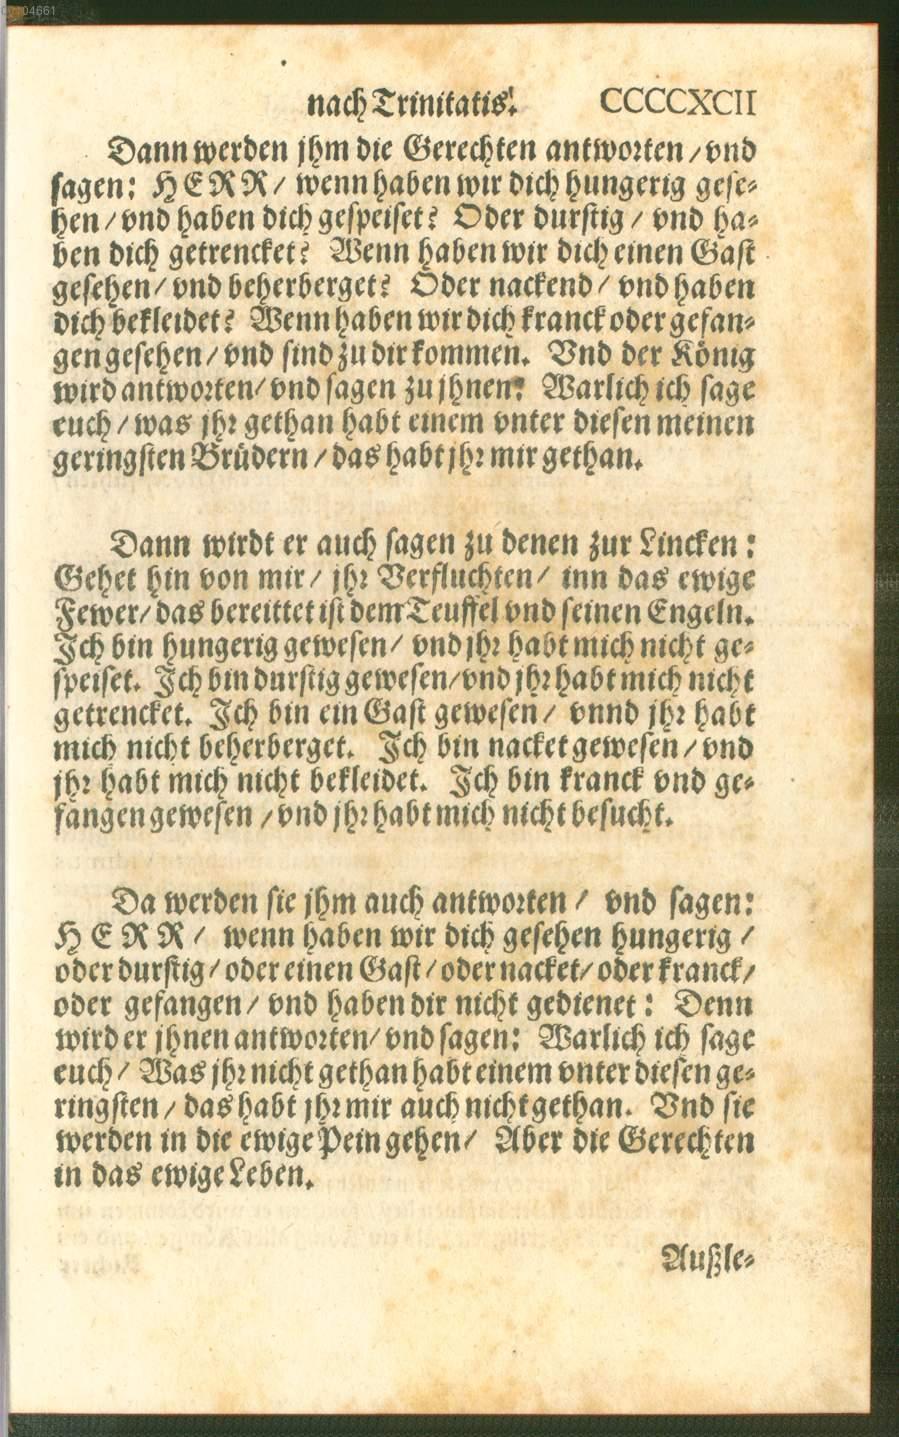 00104661
nach Trinitatis. CCCCXCII
Dann werden jhm die Gerechten antworten / vnd
sagen: HERR / wenn haben wir dich hungerig gese-
hen / vnd haben dich gespeiset? Oder durstig / vnd ha-
ben dich getrencket? Wenn haben wir dich einen Gast
gesehen / vnd beherberget? Oder nackend / vnd haben
dich bekleidet? Wenn haben wir dich kranck oder gefan-
gen gesehen / vnd sind zu dir kommen. Vnd der König
wird antworten / vnd sagen zu jhnen: Warlich ich sage
euch / was jhr gethan habt einem vnter diesen meinen
geringsten Brüdern / das habt jhr mir gethan.
Dann wirdt er auch sagen zu denen zur Lincken:
Gehet hin von mir / jhr Verfluchten / inn das ewige
Fewer / das bereittet ist dem Teuffel vnd seinen Engeln.
Ich bin hungerig gewesen / vnd jhr habt mich nicht ge-
speiset. Ich bin durstig gewesen / vnd jhr habt mich nicht
getrencket. Ich bin ein Gast gewesen / vnnd jhr habt
mich nicht beherberget. Ich bin nacket gewesen / vnd
jhr habt mich nicht bekleidet. Ich bin kranck vnd ge-
fangen gewesen / vnd jhr habt mich nicht besucht.
Da werden sie jhm auch antworten / vnd sagen:
HERR / wenn haben wir dich gesehen hungerig /
oder durstig / oder einen Gast / oder nacket / oder kranck /
oder gefangen / vnd haben dir nicht gedienet: Denn
wird er jhnen antworten / vnd sagen: Warlich ich sage
euch / Was jhr nicht gethan habt einem vnter diesen ge-
ringsten / das habt jhr mir auch nicht gethan. Vnd sie
werden in die ewige Pein gehen / Aber die Gerechten
in das ewige Leben.
Außle-